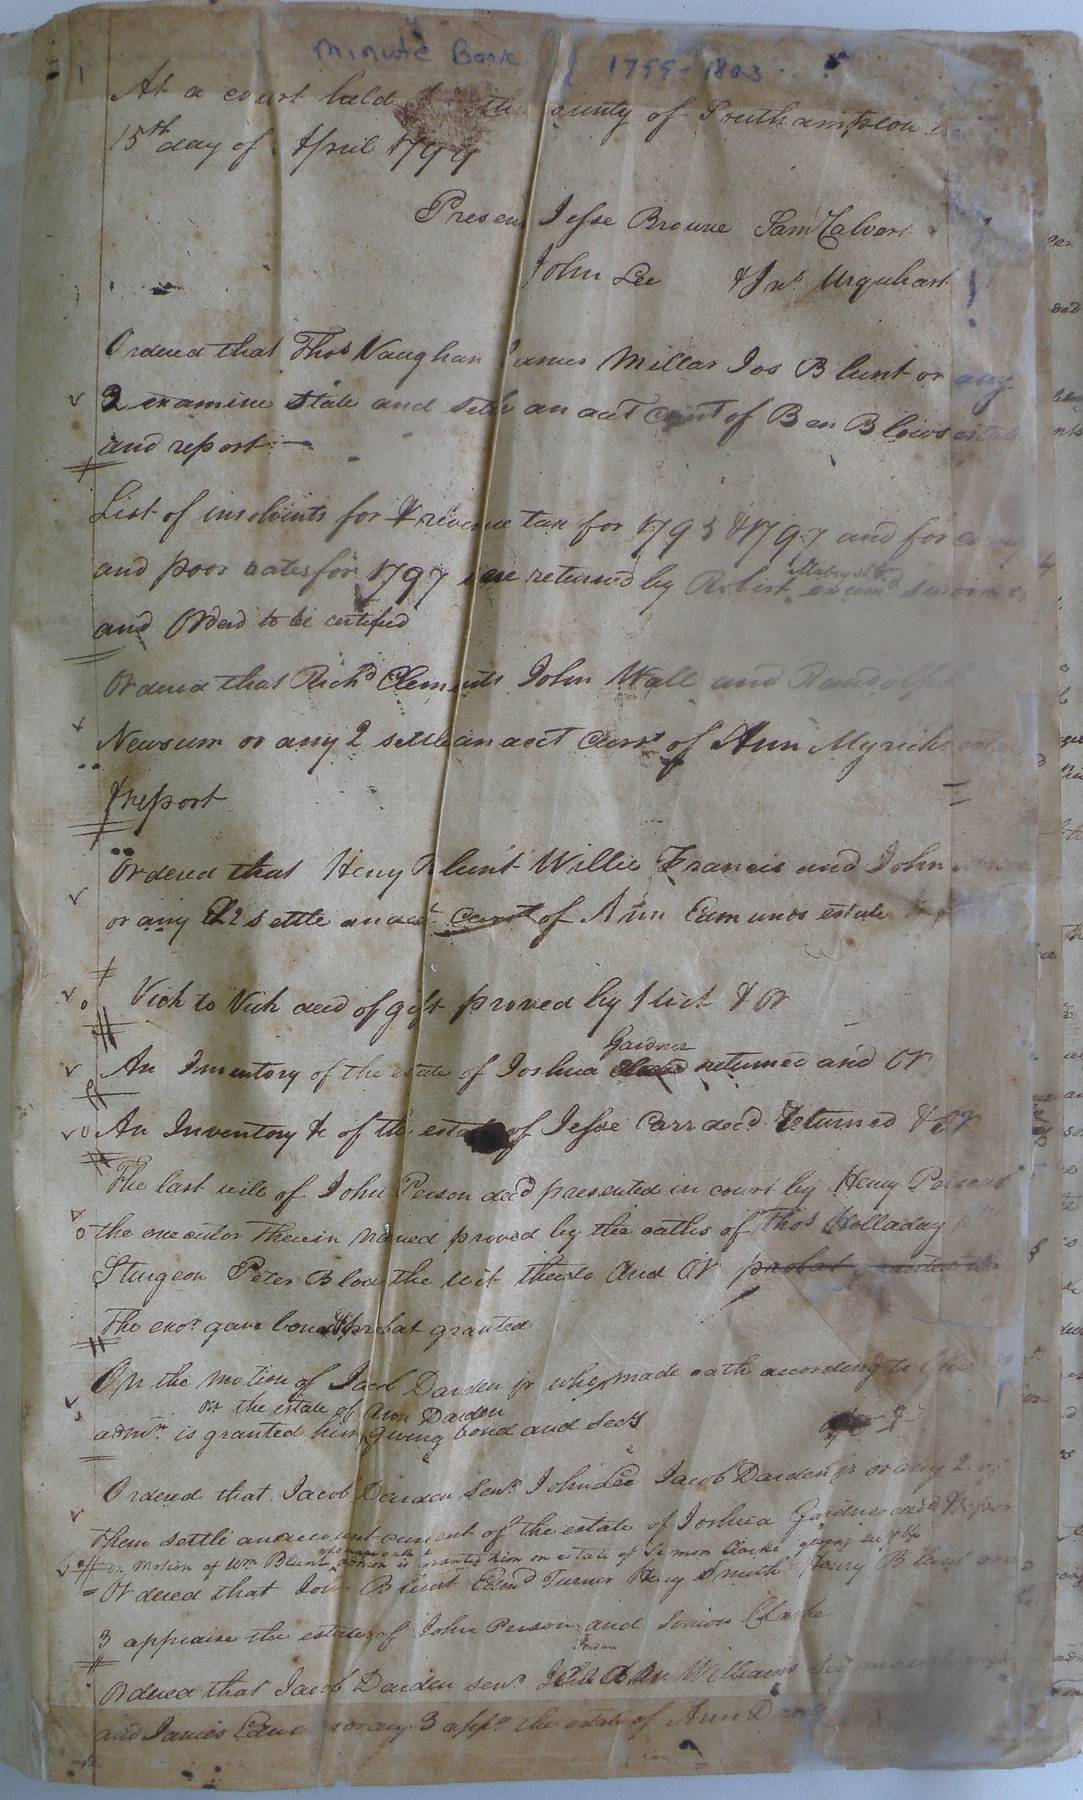 1
Minute Book 1799-1803
At a court held the county of Southampton
15th day of April 1799
Present Jesse Browne Sam Calvert
John Lee & Jno Urquhart
Ordered that Thos Vaughan James Millar Jos Blunt or any
3 examine state and settle an acct curnt of Ben Blows estate
and report
List of insolvents for & revenue tax for 1795 & 1797 and for county
and poor rates for 1797 were returned by Robert Mabry exam'd sworn to
and Orderd to be certified
Ordered that Rich'd Clements John Wall and Randolph
Newsum or any 2 settle an acct curnt of Ann Myricks estate
& report
Ordered that Henry Blunt Willie Francis and John
or any 2 settle an acct curnt of Ann Edmunds estate
Vick to Vick deed of gift proved by 1 wit & Or
An Inventory of the estate of Joshua Gardner returned and Or
An Inventory &c of the estate of Jesse Carr decd returned & Or
The last will of John Person decd presented in court by Henry Person
the executor therein named proved by the oaths of Thos Holladay
Sturgeon Peter Blow the wit thereto And Or probat granted
The exor gave bond & probat granted
On the motion of Jacob Darden jr who made oath according to law
on the estate of Ann Darden
admon is granted him giving bond and secy
Ordered that Jacob Darden Senr John Lee Jacob Darden jr or any 2 of
them settle an account current of the estate of Joshua Gardner decd & repor
who made oath &
on motion of Wm Blunt admon is granted him on estate of Simon Clarke giving
Ordered that Blunt Edmd Turner Smith Henry Blunt
3 appraise the estates of John Person and Simon Clarke
Ordered that Jacob Darden senr Jordan Williams
and James or any 3 appr the estate of Ann